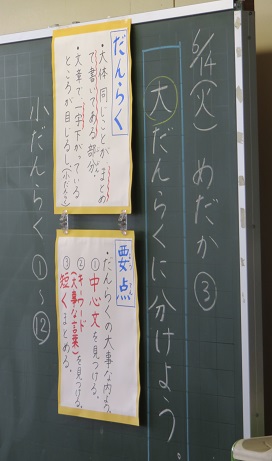 6/14(火) めだか③
大だんらくに分けよう。
だんらく
・大体同じことがまとめ
て書いてある部分。
・文章で一字下がっている
ところが目じるし(小だんらく)
要点
・だんらくの大事な内よう。
①中心文を見つける。
②キーワード
(大事な言葉)を見つける。
③短くまとめる。
小だんらく ①~⑫